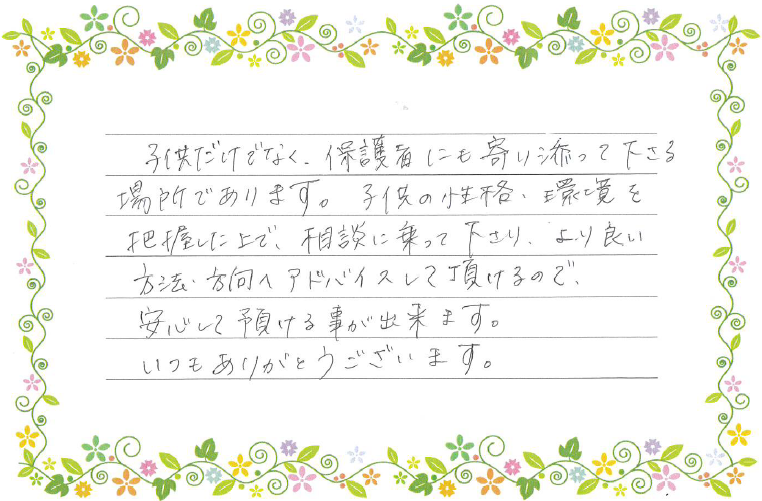 子供だけでなく、保護者にも寄り添って下さる
場所であります。子供の性格、環境を
把握した上で、相談に乗って下さり、より良い
方法、方向へアドバイスして頂けるので、
安心して預ける事が出来ます。
いつもありがとうございます。